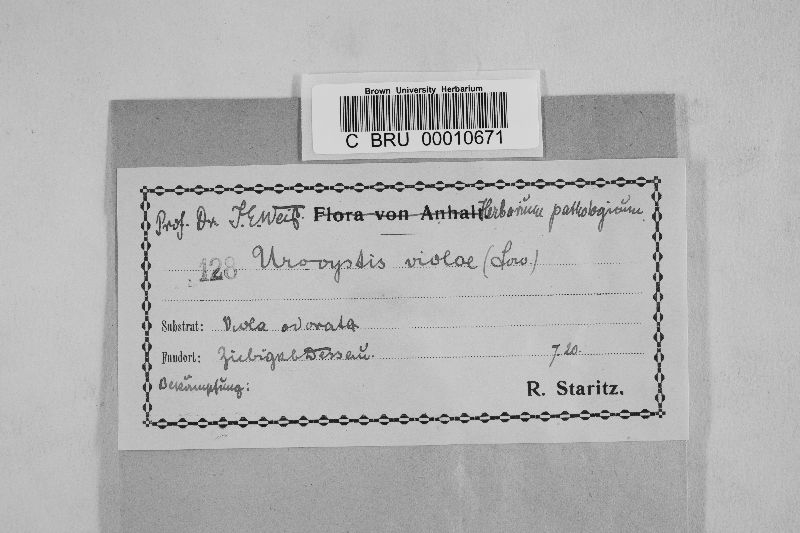 Brown University Herbarium
C BRU 00010671
Prof. Dr. J.E. Weiß. Flora von Anhalt. Herbarium pathologicum.
128 Urocystis violae (Sow.)
Substrat: Viola odorata
Fundort: Ziebigk b Dessau. 7.20.
Bekämpfung:
R. Staritz.